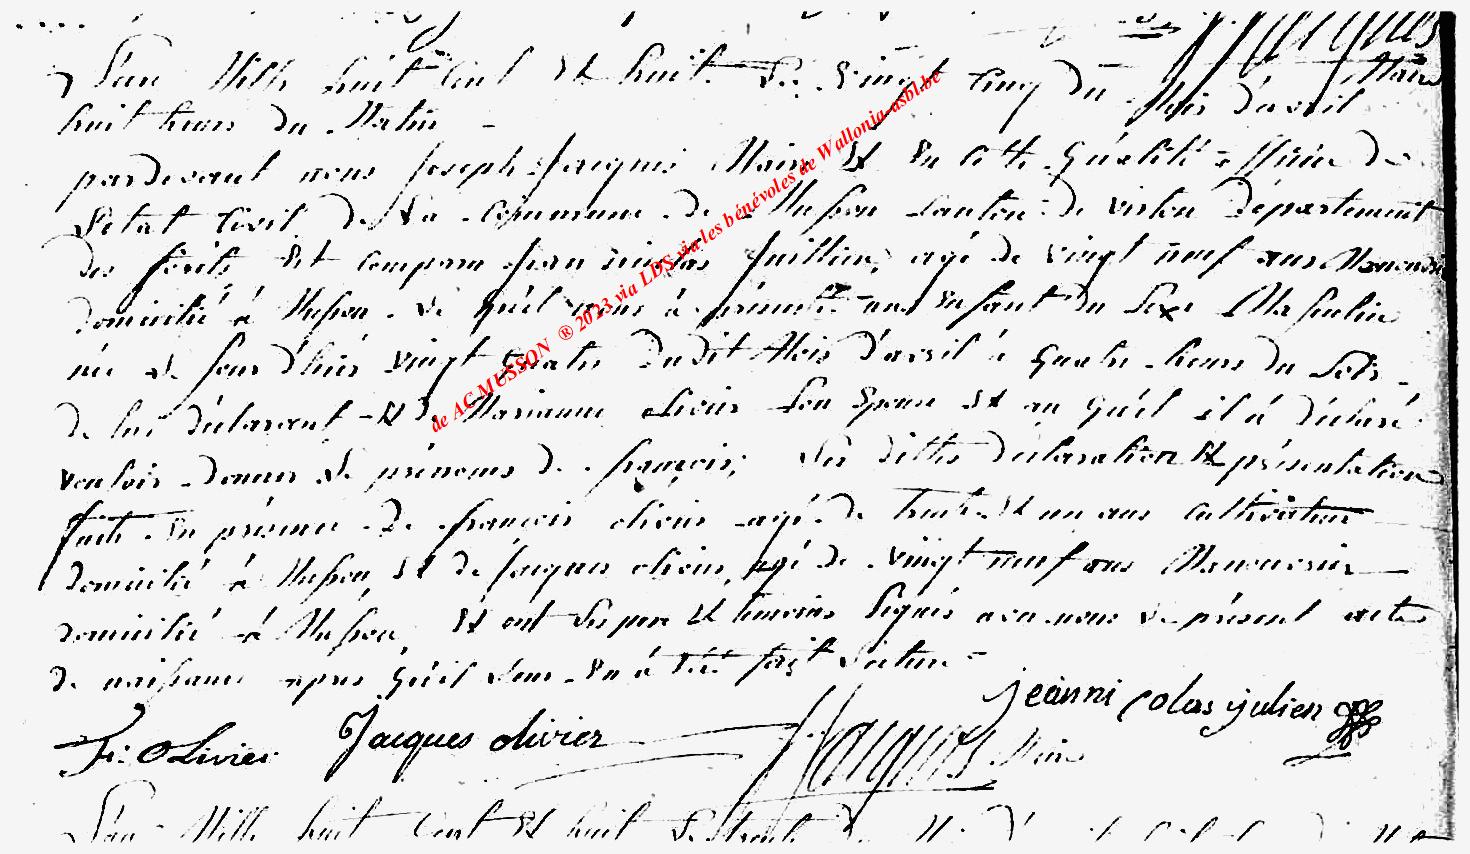 Jacques
Maire
L'an Mille huit Cent Et huit Le Vingt Cinq du Mois d'avril
huit heurs du Matin
pardevant nous Joseph Jacques Maire Et En Cette Qualité officie de
Létat Civil de La Commune de Musson Canton de virton Département
des forêts Est Comparu jean nicolas juillien, agé de vingt neuf ans Manouvrie
domicilié à Musson. Le quel nous à présenté un Enfant du Sexe Masculin
née le jour d'hier vingt quatre dudit Mois d'avril à quatre heurs du Soir
de lui déclarant Et de Marianne olivier Son Epouse Et au quel il à déclaré
vouloir donner le prénoms de françois; Les dittes déclaration Et présentation
faite En présence de françois olivier agé de trente Et un ans Cultivateur
domicilié à Musson, Et de jacques olivier, agé de vingt neuf ans Manouvrier
domicilié à Musson, Et ont Les pere Et temoins Signés avec nous le présent acte
de naissance apres quil Leur En à Eté fait Lecture
jeanni colas julien
F: Olivier Jacques olivier Jacques Maire
L'an Mille huit Cent Et huit Le trente
de AC MUSSON ® 2023 via LDS via les bénévoles de Wallonia-asbl.be